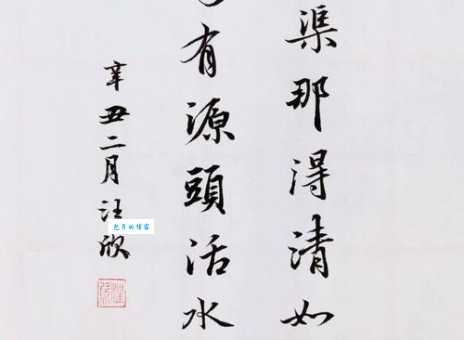 渠那得清如
有源頭活水
辛丑二月汪欣